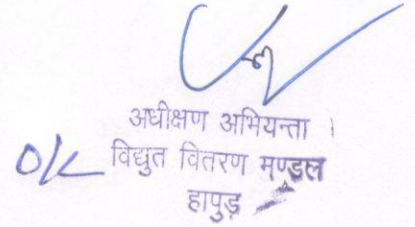 अधीक्षण अभियन्ता ।
OK विद्युत वितरण मण्डल
हापुड़